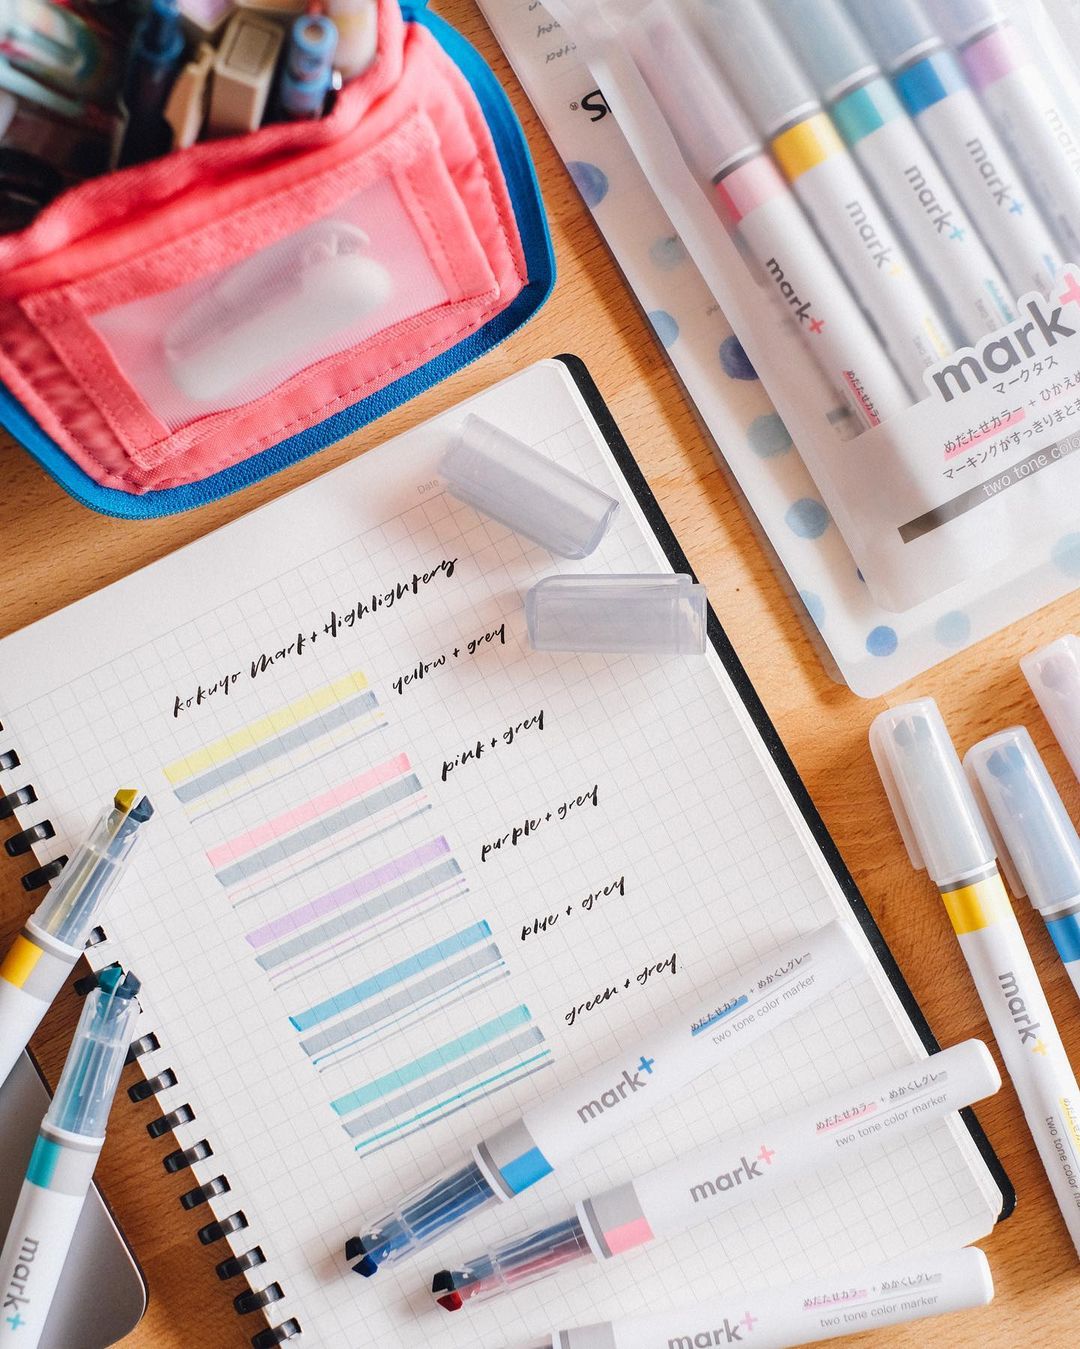 mark+
mark+
mark+
mark+
mark+
マークタス
めだたせカラー + ひかえめ
マーキングがすっきりまとま
two tone color
Date
kokuyo Mark+ Highlighters
yellow + grey
pink + grey
purple + grey
blue + grey
green + grey
mark+
めだたせカラー + めかくしグレー
two tone color marker
mark+
めだたせカラー + めかくしグレー
two tone color marker
mark+
めだたせカラー + めかくしグレー
two tone color marker
mark+
two tone color
mark+